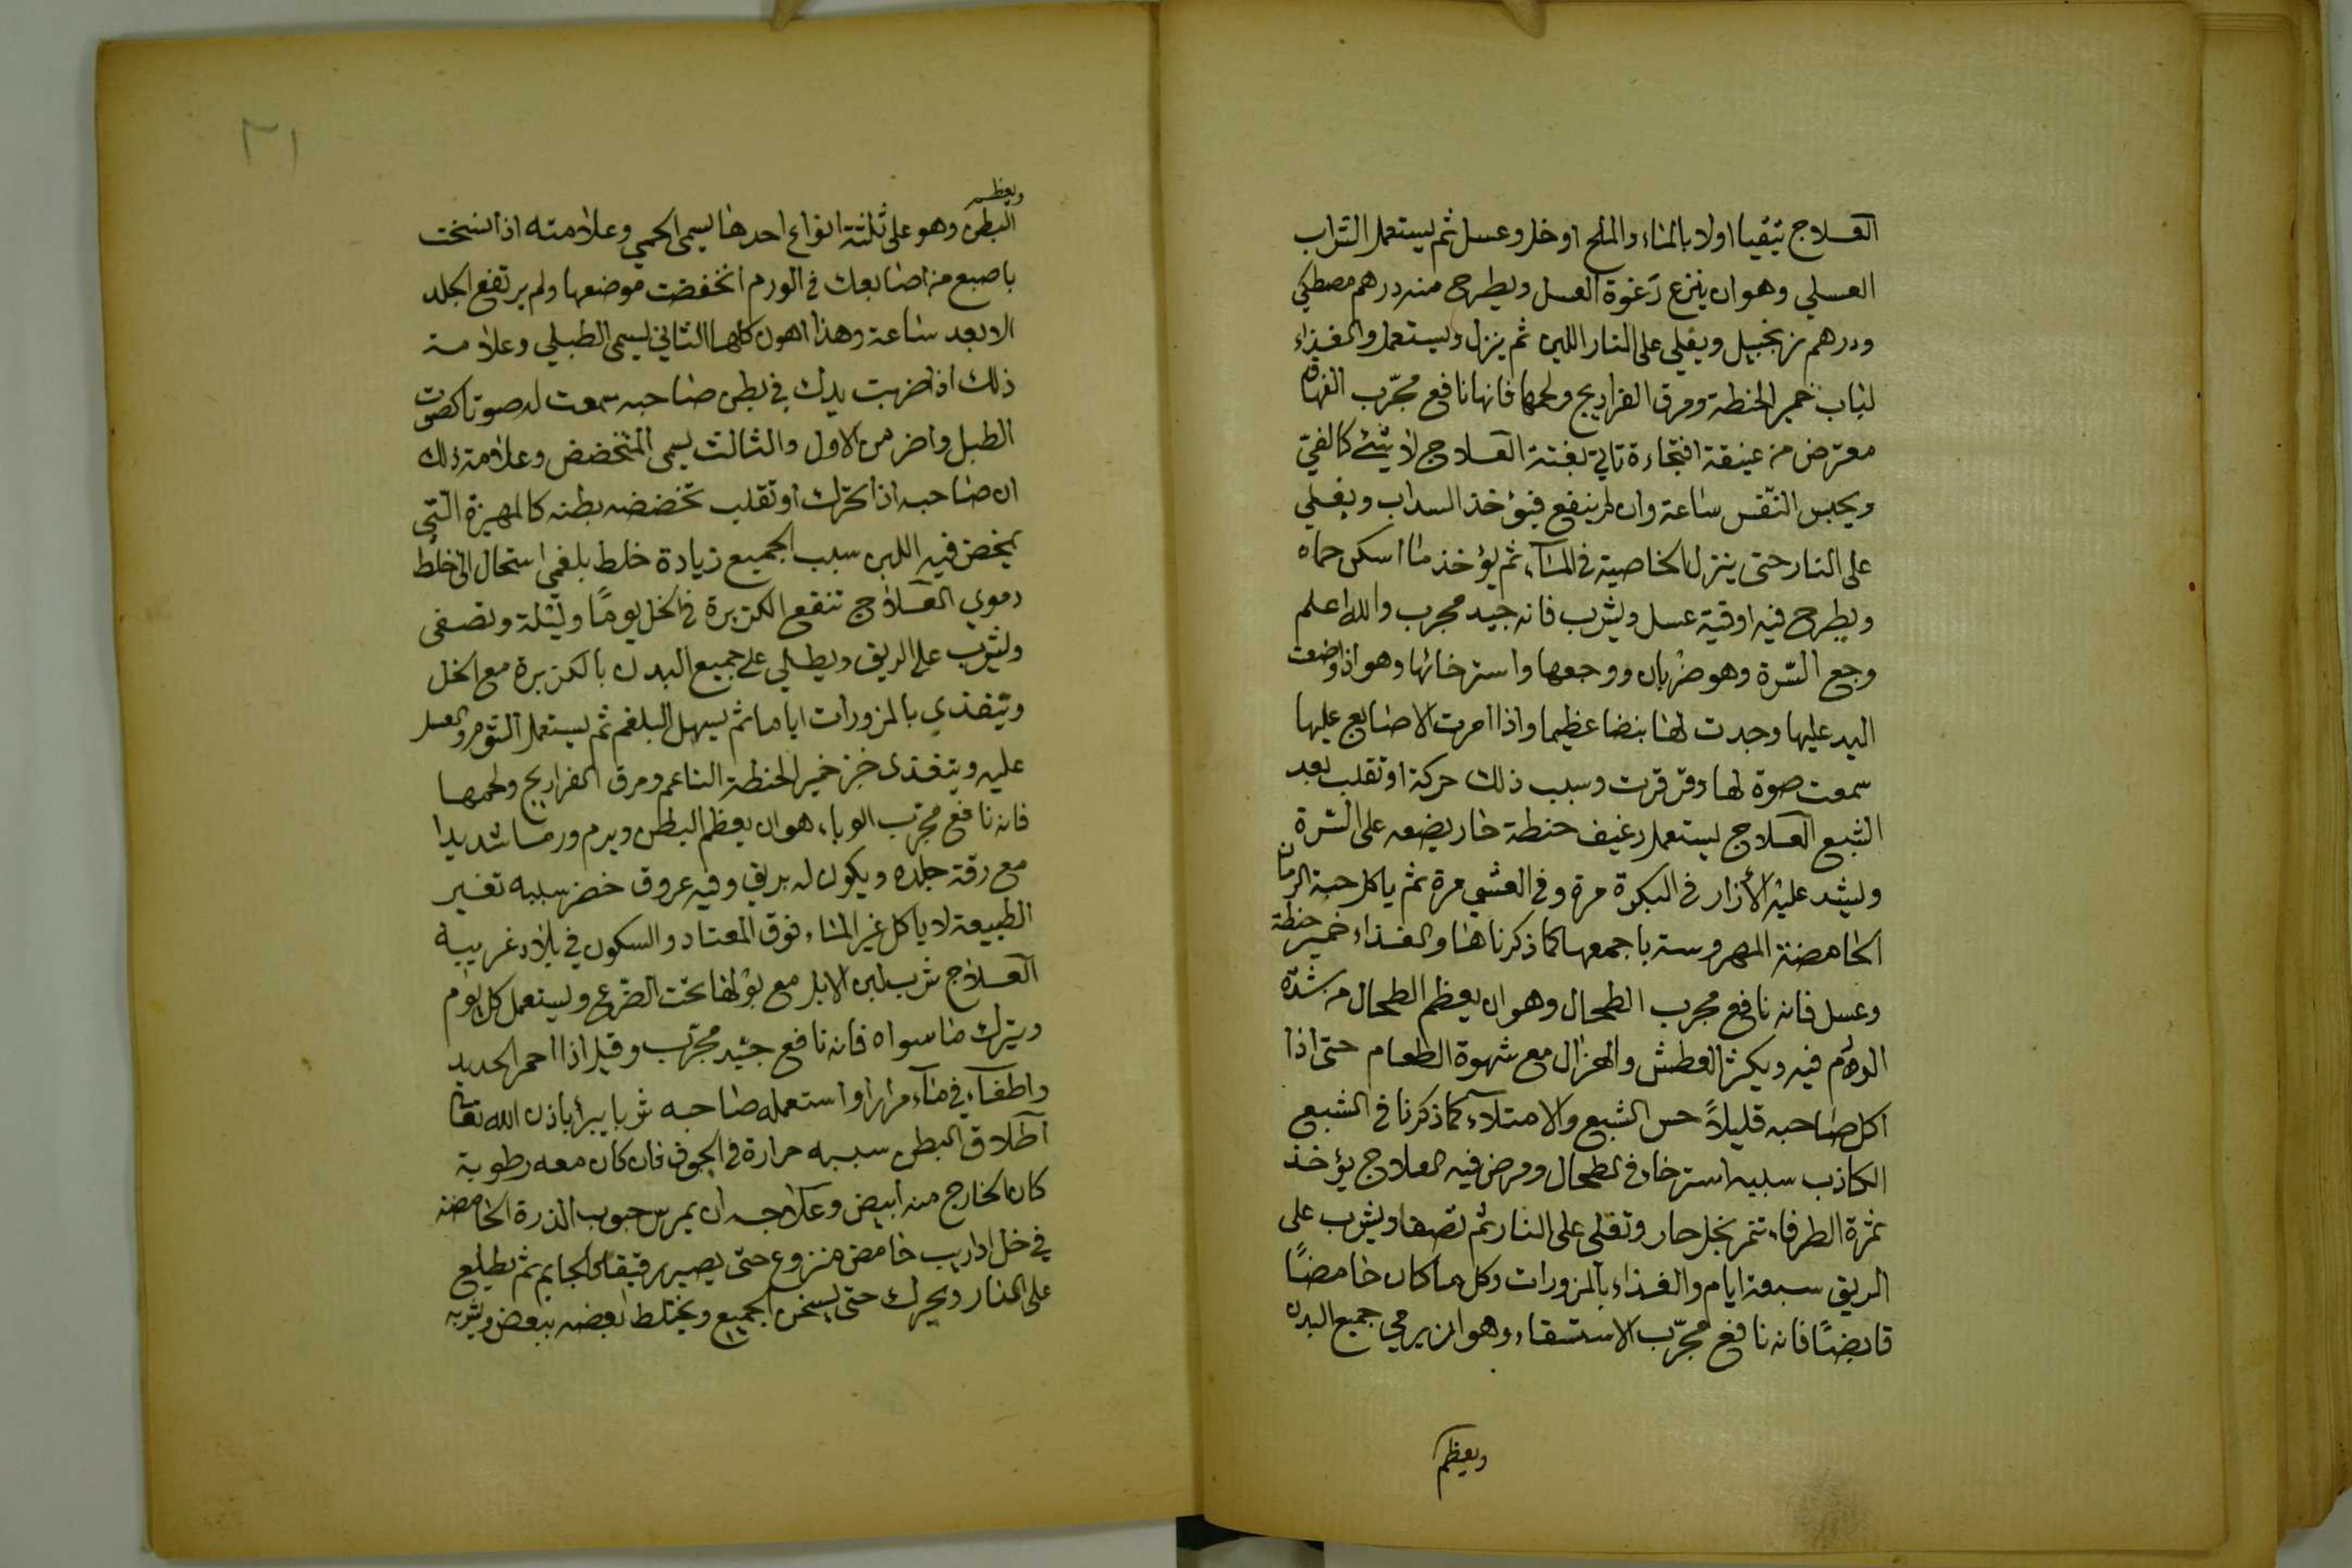 العلاج يتقيا اولا بالماء والملح او خل وعسل ثم يستعمل الشراب
العسلي وهو ان ينزع رغوة العسل ويطرح منه درهم مصطكي
ودرهم زنجبيل ويغلي على النار اللين ثم ينزل ويستعمل والغذاء
لباب خمير الحنطة ومرق الفراريج ولحمها فانها نافع مجرّب الفهاق
معترض من فتجاءة تاتي بغتة العلاج لا شئ كالقيّ
ويحبس النّفس ساعة وان لم ينفع فيؤخذ السداب ويغلي
على النار حتى ينزل الخاصية في الماء ثم يؤخذ ما اسكن حماه
ويطرح فيه اوقية عسل ويشرب فانه جيد مجرب والله اعلم
وجع السّرة وهو ضربان ووجعها واسترخائها وهو اذا وضعت
اليد عليها وجدت لها بنضا عظيما واذا امرت الاصابع عليها
سمعت صوة لها وقرقرت وسبب ذلك حركة او تقلب بعد
الشبع العلاج يستعمل رغيف حنطة حار يضعه على السّرة
ويشد عليه الأزار في البكرة مرة وفي العشي مرة ثم ياكل حبة الرمان
الحامضة المهروسة باجمعها كما ذكرنا هنا والغذاء خمير حنطة
وعسل فانه نافع مجرب الطحال وهو ان يعظم الطحال من شدّة
الورم فيه ويكثر العطش والهزال مع شهوة الطعام حتى اذا
اكل صاحبه قليلاً حس الشبع والامتلاء كما ذكرنا في الشبع
الكاذب سببه استرخاء في الطحال ومرض فيه العلاج يؤخذ
ثمرة الطرفاء تتمر بخل حار وتغلى على النار ثم تصفا ويشرب على
الريق سبعة ايام والغذاء بالمزورات وكل ما كان حامضًا
قابضًا فانه نافع مجرّب الاستسقاء وهو ان يرمي جميع البدن
ويعظم
٣١
ويعظم
البطن وهو على ثلثة انواع احدها يسمى الحمي وعلامته اذا
باصبع من اصابعك في الورم انخفضت موضعها ولم يرتفع الجلد
الا بعد ساعة وهذا اهون كلها الثاني يسمى الطبلي وعلامة
ذلك اذا ضربت يدك في بطن صاحبه سمعت له صوتا كصوت
الطبل واضر من الاول والثالث يسمى المتخضخض وعلامة ذلك
ان صاحبه اذا تحرك او تقلب تخضخضه بطنه التي
يخض فيه اللبن سبب الجميع زيادة خلط بلغمي استحال الى خلط
دموي العلاج تنقع الكزبرة في الخل يومًا وليلة وتصفى
ويشرب على الريق ويطلي على جميع البدن بالكزبرة مع الخل
ويتغذي بالمزورات اياما ثم يسهل البلغم ثم يستعمل الثوم والعسل
عليه ويتغذى خبز خمير الحنطة الناعم ومرق الفراريج ولحمها
فانه نافع مجرّب الوباء هو ان يعظم البطن ويرم ورما شديدا
مع رقة جلده ويكون له بريق وفيه عروق خضر سببه تغير
الطبيعة لا ياكل غير الماء فوق المعتاد والسكون في بلاد غريبة
العلاج شرب لبن الابل مع بولها تحت الضرع ويستعمل كل يوم
ويترك ما سواه فانه نافع جيد مجرّب وقيل اذا احمر الحديد
واطفاء في ماء مرارا واستعمله صاحبه شربا يبرأ باذن الله تعالى
اطلاق البطن سببه حرارة في الجوف فان كان معه رطوبة
كان الخارج منه ابيض وعلاجه ان يمرس حبوب الذرة الحامضة
في خل او اريب حامض منزوع حتى يصير رقيقا ثم يطلع
على النار ويحرك حتى يسخن الجميع ويختلط بعضه ببعض ويشربه